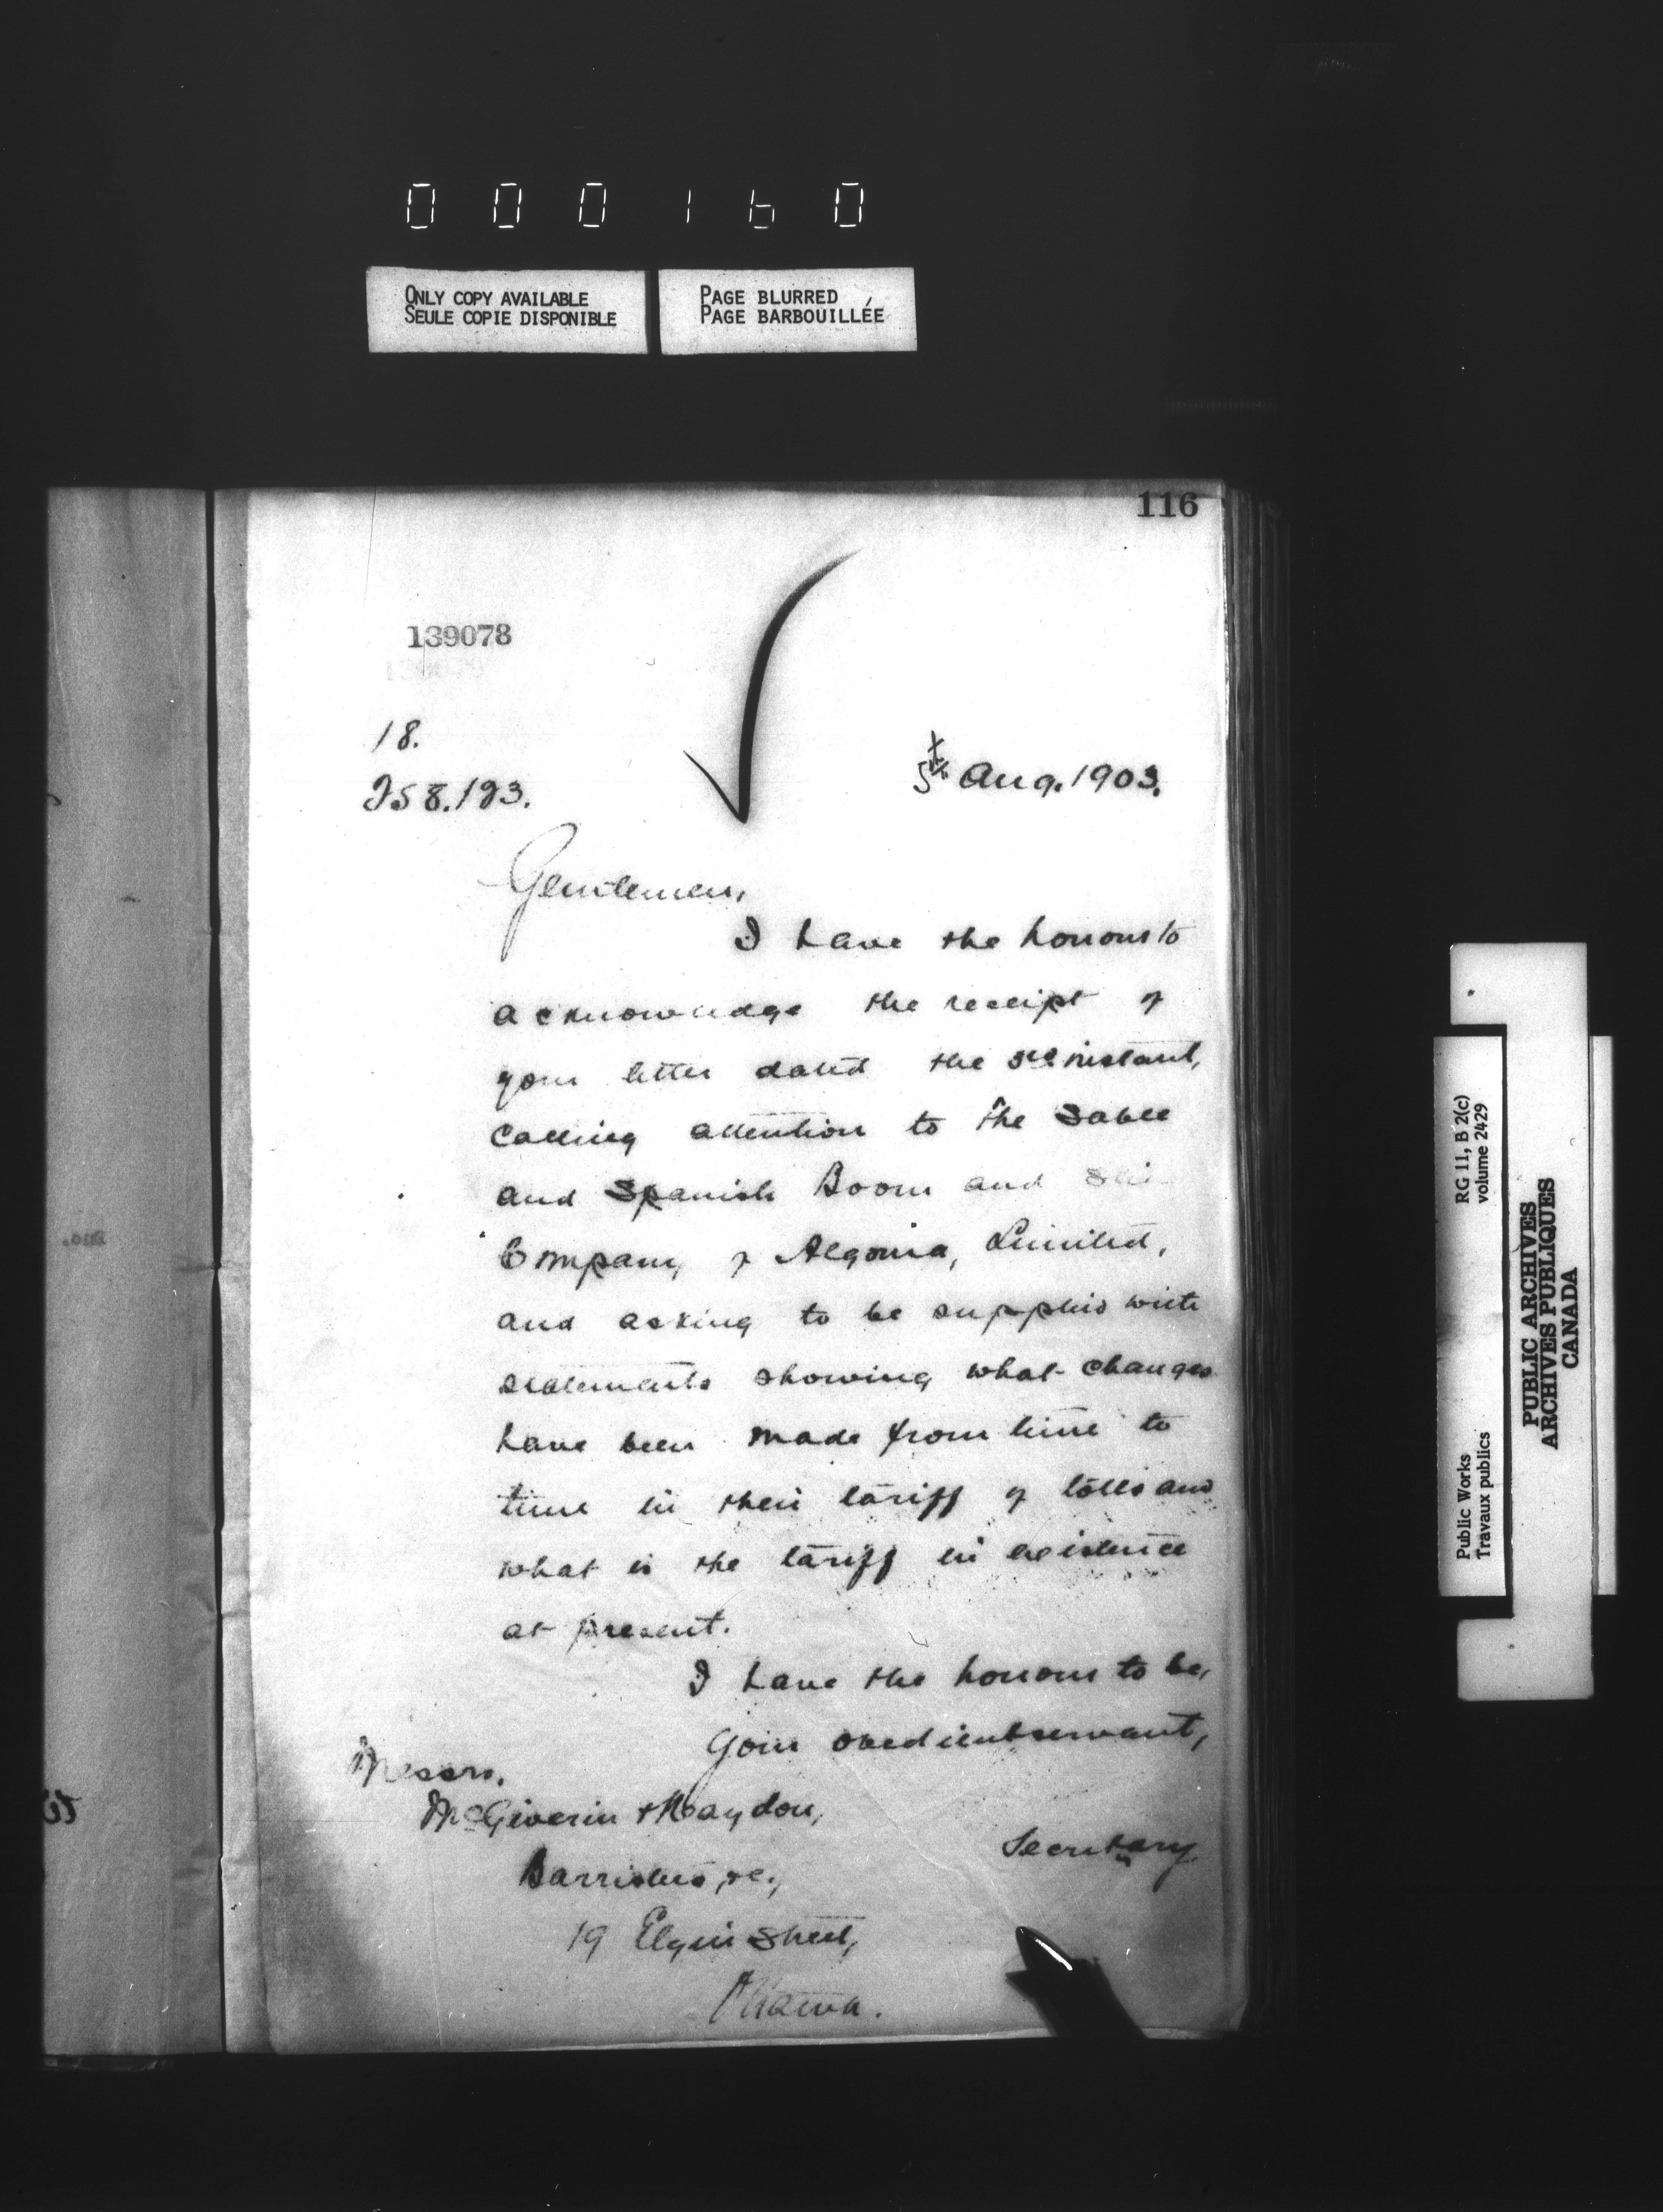 000160
ONLY COPY AVAILABLE
SEULE COPIE DISPONIBLE
PAGE BLURRED
PAGE BARBOUILLÉE
116
139078
18.
258.193.
5th Aug. 1903.
Gentlemen,
I have the honour to
acknowledge the receipt of
your letter dated the instant,
calling attention to the Sable
and Spanish Boom and
Company of Algoma, Limited,
and asking to be supplied with
statements showing what changes
have been made from time to
time in their tariff of tolls and
what is the tariff in existence
at present.
I have the honour to be,
Your obedient servant,
Secretary
Messrs.
McGiverin & Haydon,
Barristers, &c.,
19 Elgin Street,
Ottawa.
Public Works
Travaux publics
RG 11, B 2(c)
volume 2429
PUBLIC ARCHIVES
ARCHIVES PUBLIQUES
CANADA